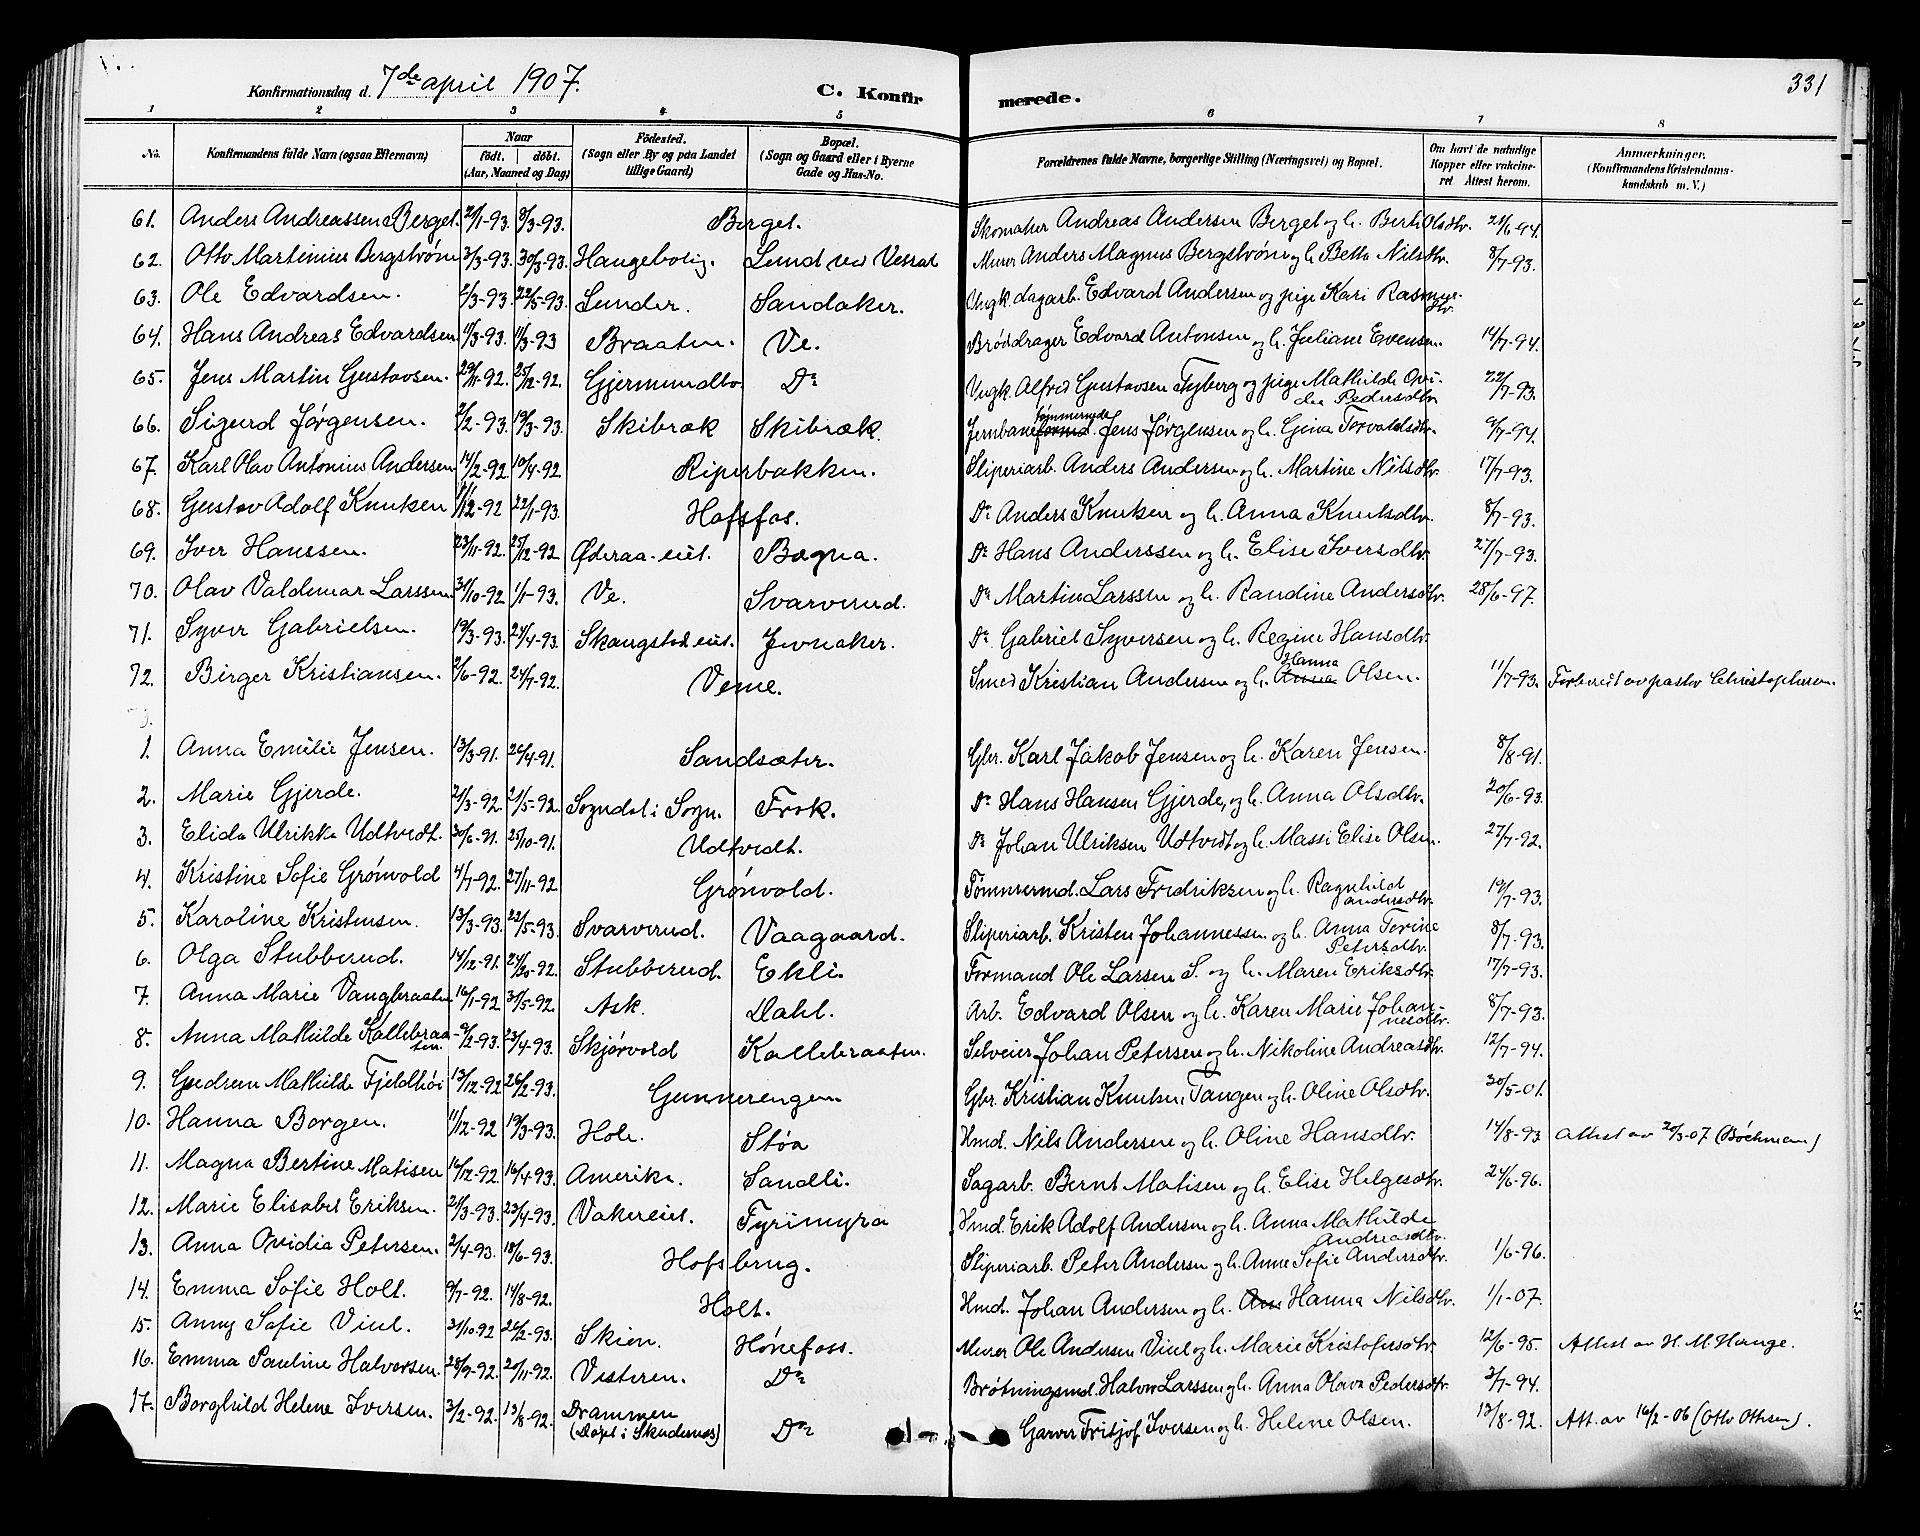 Konfirmationsdag d. 7de april 1907. C. Konfir merede. 331
1 2 3 4 5 6 7 8
No. Konfirmandens fulde Navn (ogsaa Efternavn) Naar født. døbt. (Aar, Maaned og Dag) Fødested. (Sogn eller By og paa Landet tillige Gaard) Bopæl. (Sogn og Gaard eller i Byerne Gade og Hus-No. Forældrenes fulde Navne, borgerlige Stilling (Næringsvei) og Bopæl. Om havt de naturlige Kopper eller vakcineret Attest herom. Anmærkninger. (Konfirmandens Kristendomskundskab m. V.)
61. Anders Andreassen Berget. 8/3-93. Berget. Skomaker Andreas Andersen Berget og h. Berte Olsdtr. 21/6-94.
62. Otto Martinius Bergstrøm 3/3-93. 30/3-93. Haugebolig. Lund ved Vestad Murer Anders Magnus Bergstrøm og h. Betta Nilsdtr. 8/7-93.
63. Ole Edvardsen. 2/3-93. 22/5-93. Lunder. Sandaker. Ungk. dagarb. Edvard Andersen og pige Kari Rasmusdtr.
64. Hans Andreas Edvardsen 11/3-93. 11/3-93 Braaten. Ve. Brøddrager Edvard Antonsen og h. Juliane Evensen. 14/7-94.
65. Jens Martin Gustavsen. 29/11-92. 25/12-92. Gjermundbo Do Ungk. Alfred Gustavsen Fyberg og pige Mathilde Ovidia Pedersdtr. 22/7-93.
66. Sigurd Jørgensen. 2/2-93. 19/3-93. Skibræk Skibræk. Jernbanetømmermd. Jens Jørgensen og h. Gina Torvaldsdtr. 9/7-94.
67. Karl Olav Antonius Andersen 14/2-92. 10/4-92. Riperbakken. Sliperiarb. Anders Andersen og h. Martine Nilsdtr. 17/7-93.
68. Gustav Adolf Knutsen 11/12-92 22/1-93. Hofsfos. Do Anders Knutsen og h. Anna Knutsdtr. 8/7-93.
69. Iver Hanssen. 23/11-92. 25/12-92 Øderaa-eiet. Bægna. Do Hans Anderssen og h. Elise Iversdtr. 27/7-93.
70. Olav Valdemar Larssen. 31/10-92 1/1-93. Ve. Svarverud. Do Martin Larssen og h. Randine Andersdtr. 28/6-97.
71. Syver Gabrielsen. 19/3-93. 24/4-93. Skaugstad eiet. Jevnaker. Do Gabriel Syversen og h. Regine Hansdtr.
72. Birger Kristiansen. 2/6-92. 24/7-92. Veme. Smed Kristian Andersen og h. Anna Hanna Olsen. 11/7-93. Forberedt av pastor Christophersen
1. Anna Emilie Jensen. 13/3-91. 26/4-91. Sandsæter. Gbr. Karl Jakob Jensen og h. Karen Jensen. 8/8-91.
2. Marie Gjerde. 21/3-92. 21/5-92. Sogndal i Sogn. Frok. Do Hans Hansen Gjerde, og h. Anna Olsdtr. 20/6-93.
3. Elida Ulrikke Udtvedt. 30/6-91. 25/10-91. Udtvedt. Do Johan Ulriksen Udtvedt og h. Massi Elise Olsen. 27/7-92.
4. Kristine Sofie Grønvold 4/7-92. 27/11-92 Grønvold. Tømmermd. Lars Fredriksen og h. Ragnhild andersdtr. 19/7-93.
5. Karoline Kristensen. 13/3-93. 22/5-93. Svarverud. Vaagaard. Sliperiarb. Kristen Johannessen og h. Anna Torine Petersdtr. 8/7-93.
6. Olga Stubberud. 14/12-91. Stubberud. Ekli. Formand Ole Larsen S. og h. Maren Eriksdtr. 17/7-93.
7. Anna Marie Vangbraaten 16/1-92 31/5-92. Ask. Dahl. Arb. Edvard Olsen og h. Karen Marie Johannesdtr. 8/7-93.
8. Anna Mathilde Kallebraaten. 9/2-93. 23/4-93. Skjørvold Kallebraaten. Selveier Johan Petersen og h. Nikoline Andreasdtr. 12/7-94.
9. Gudrun Mathilde Fjeldhøi 13/12-92 26/2-93. Gunnerengen Gbr. Kristian Knutsen, Tangen og h. Oline Olsdtr. 30/5-01.
10. Hanna Borgen. 11/12-92 19/3-93. Hole. Støa Hmd. Nils Andersen og h. Oline Hansdtr. 14/8-93 Attest av 20/3-07 (Bøchman)
11. Magna Bertine Matisen 16/12-92. 16/4-93. Amerika. Sandli. Sagarb. Bernt Matisen og h. Elise Helgesdtr. 24/6-96.
12. Marie Elisabet Eriksen. 21/3-93. 23/4-93. Vakereiet. Fyrimyra Hmd. Erik Adolf Andersen og h. Anna Mathilde Andreasdtr.
13. Anna Ovidia Petersen. 2/4-93. 18/6-93. Hofsbrug. Sliperiarb. Peter Andersen og h. Anne Sofie Andersdtr. 1/6-96.
14. Emma Sofie Holt. 9/7-92. 14/8-92. Holt. Hmd. Johan Andersen og h. Hanna Nilsdtr. 1/1-07.
15. Anny Sofie Viul. 31/10-92 26/2-93. Skien. Hønefoss. Murer Ole Andersen Viul og h. Marie Kristofersdtr. 12/6-95. Attest av H. M. Hauge.
16. Emma Pauline Halvorsen. 28/9-92. 20/11-92. Vesteren. Do Brøtningsmd. Halvor Larssen og h. Anna Olava Pedersdtr. 3/7-94.
17. Borghild Helene Iversen. 3/2-92. 13/8-92. Drammen (Døpt i Skudesnes) Do Garver Fritjof Iversen og h. Helene Olsen. 13/8-92. Att. av 16/2-06 (Otto Othsen).